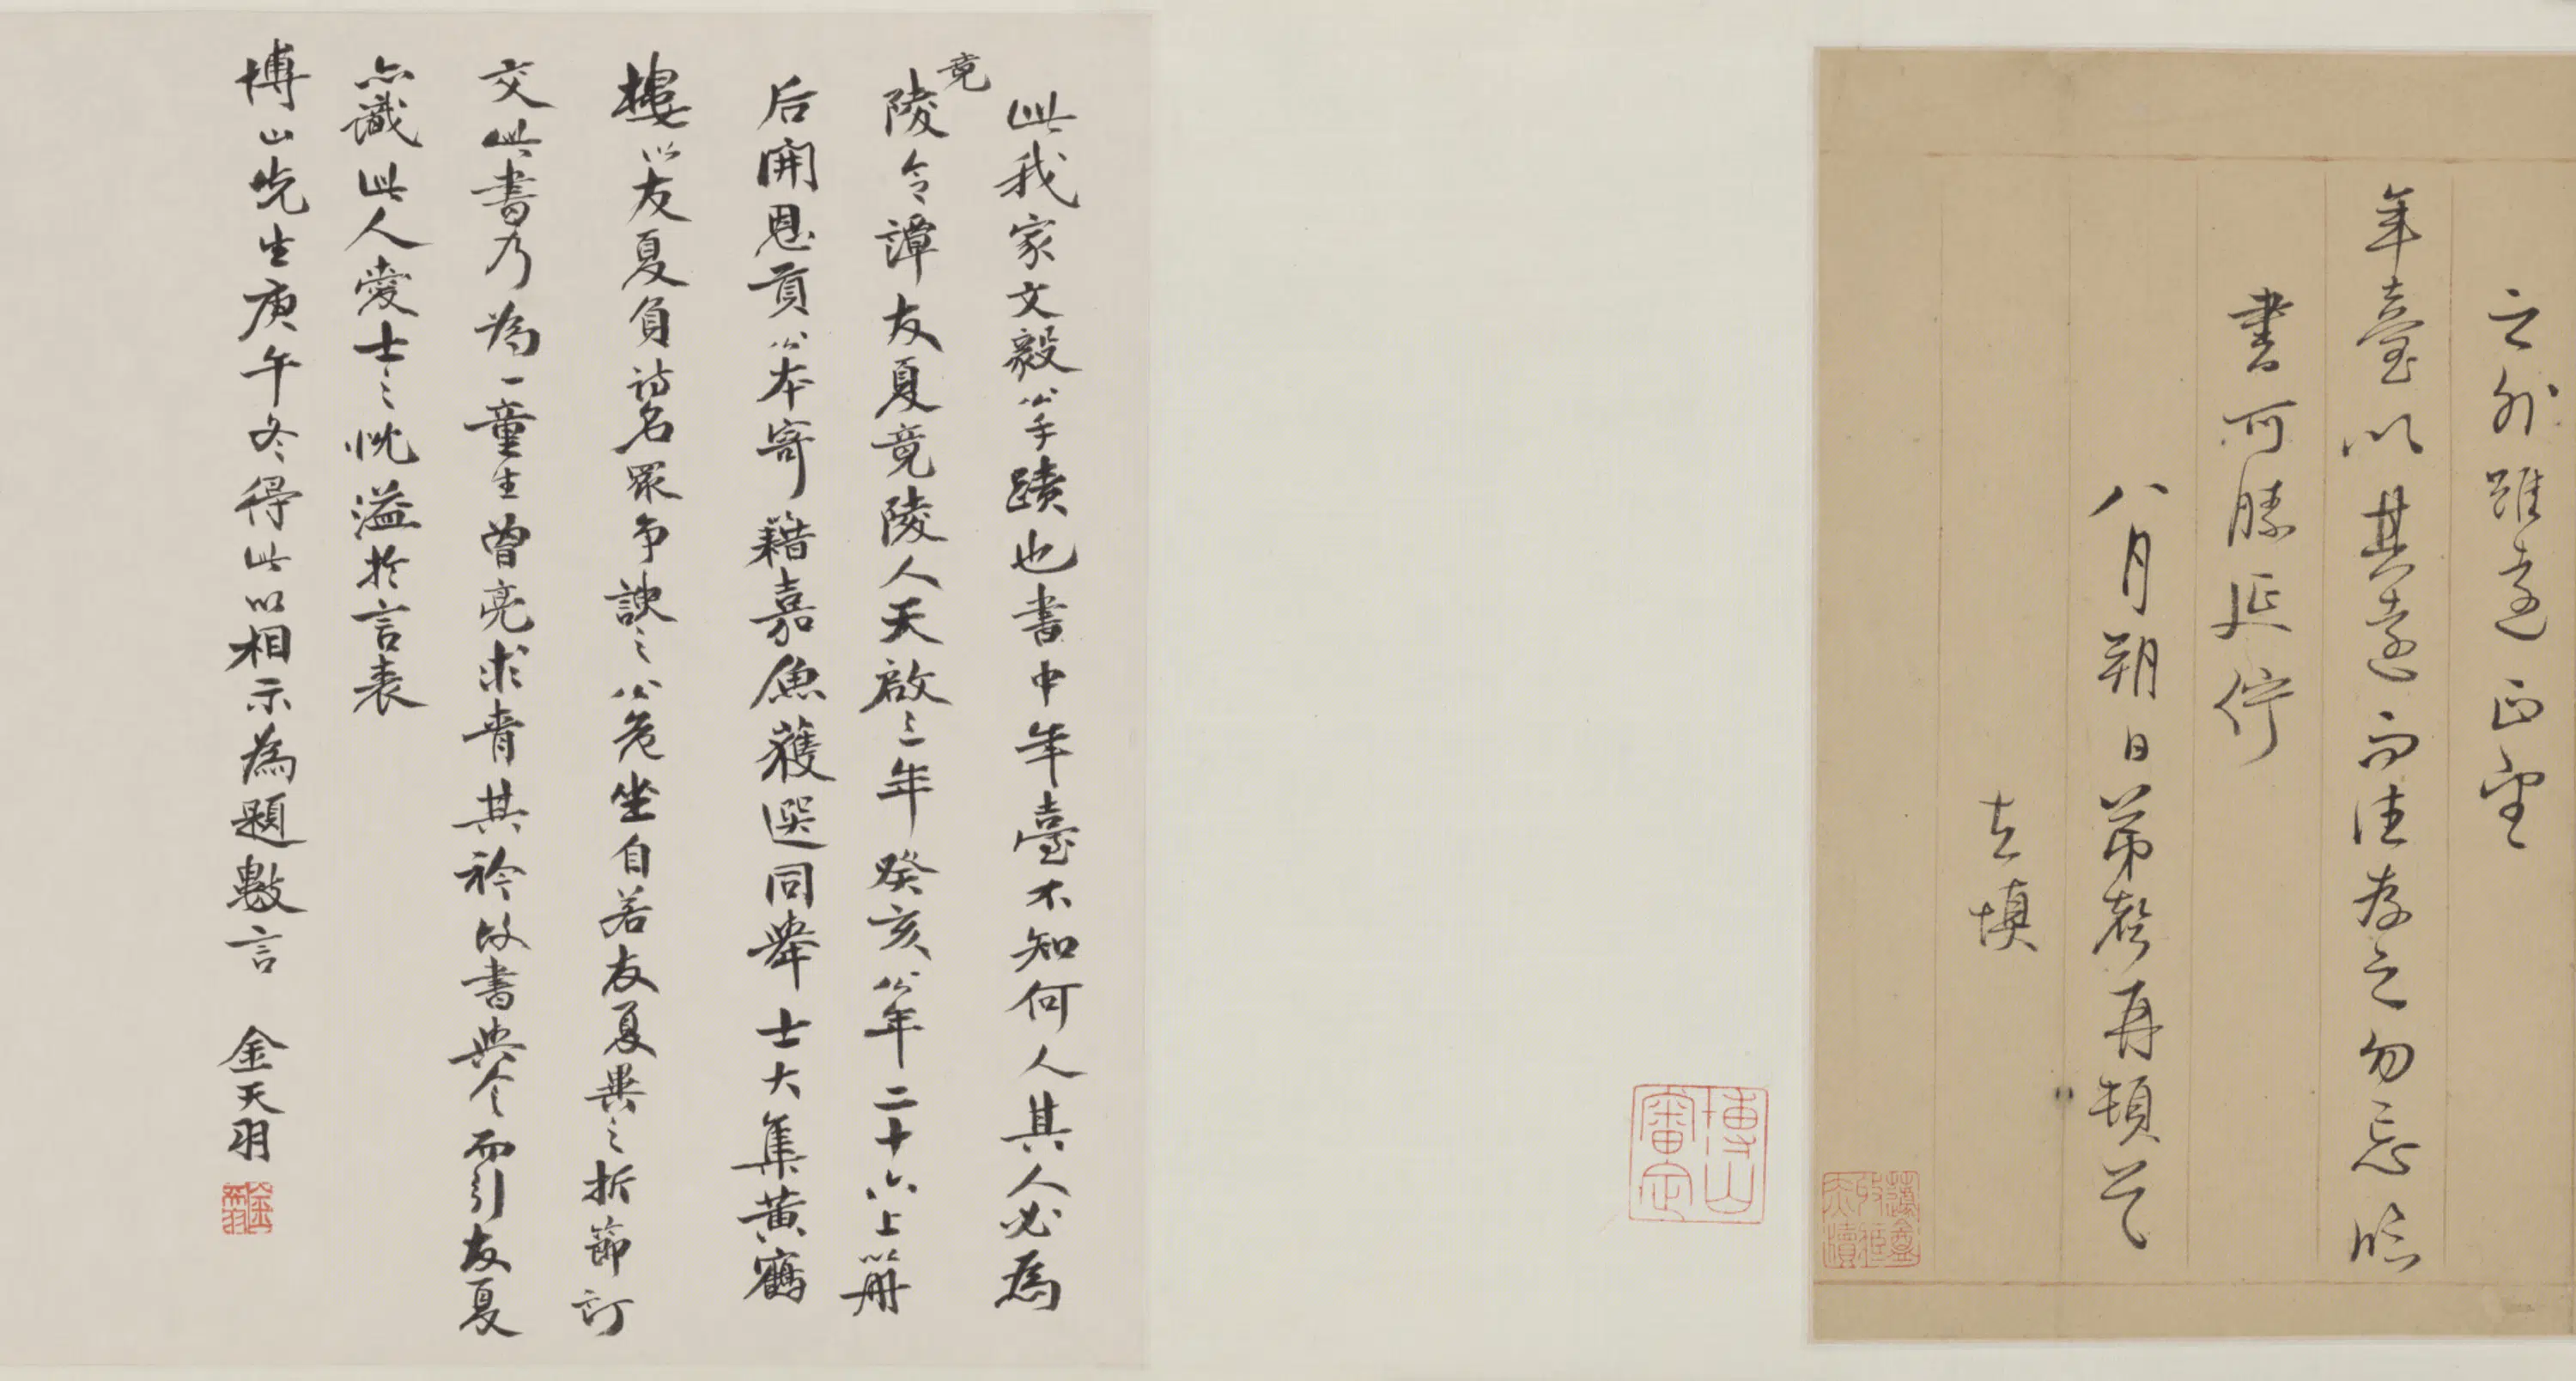 之外雖遠正望
年臺以其遠而注存之勿忘臨
書可勝延佇
八月朔日弟聲再頓首
左填
博山審定
此我家文毅公手蹟也書中年臺不知何人其人必為
竟
陵令譚友夏竟陵人天啟三年癸亥公年二十六上冊
后開恩貢公本寄籍嘉魚獲選同舉士大集黃鶴
樓以友夏負詩名眾爭諛之公危坐自若友夏異之折節訂
交此書乃為一童生曾亮求青其衿故書與令而引友夏
亦識此人愛士之忱溢於言表
博山先生庚午冬得此以相示為題數言 金天羽
金天羽